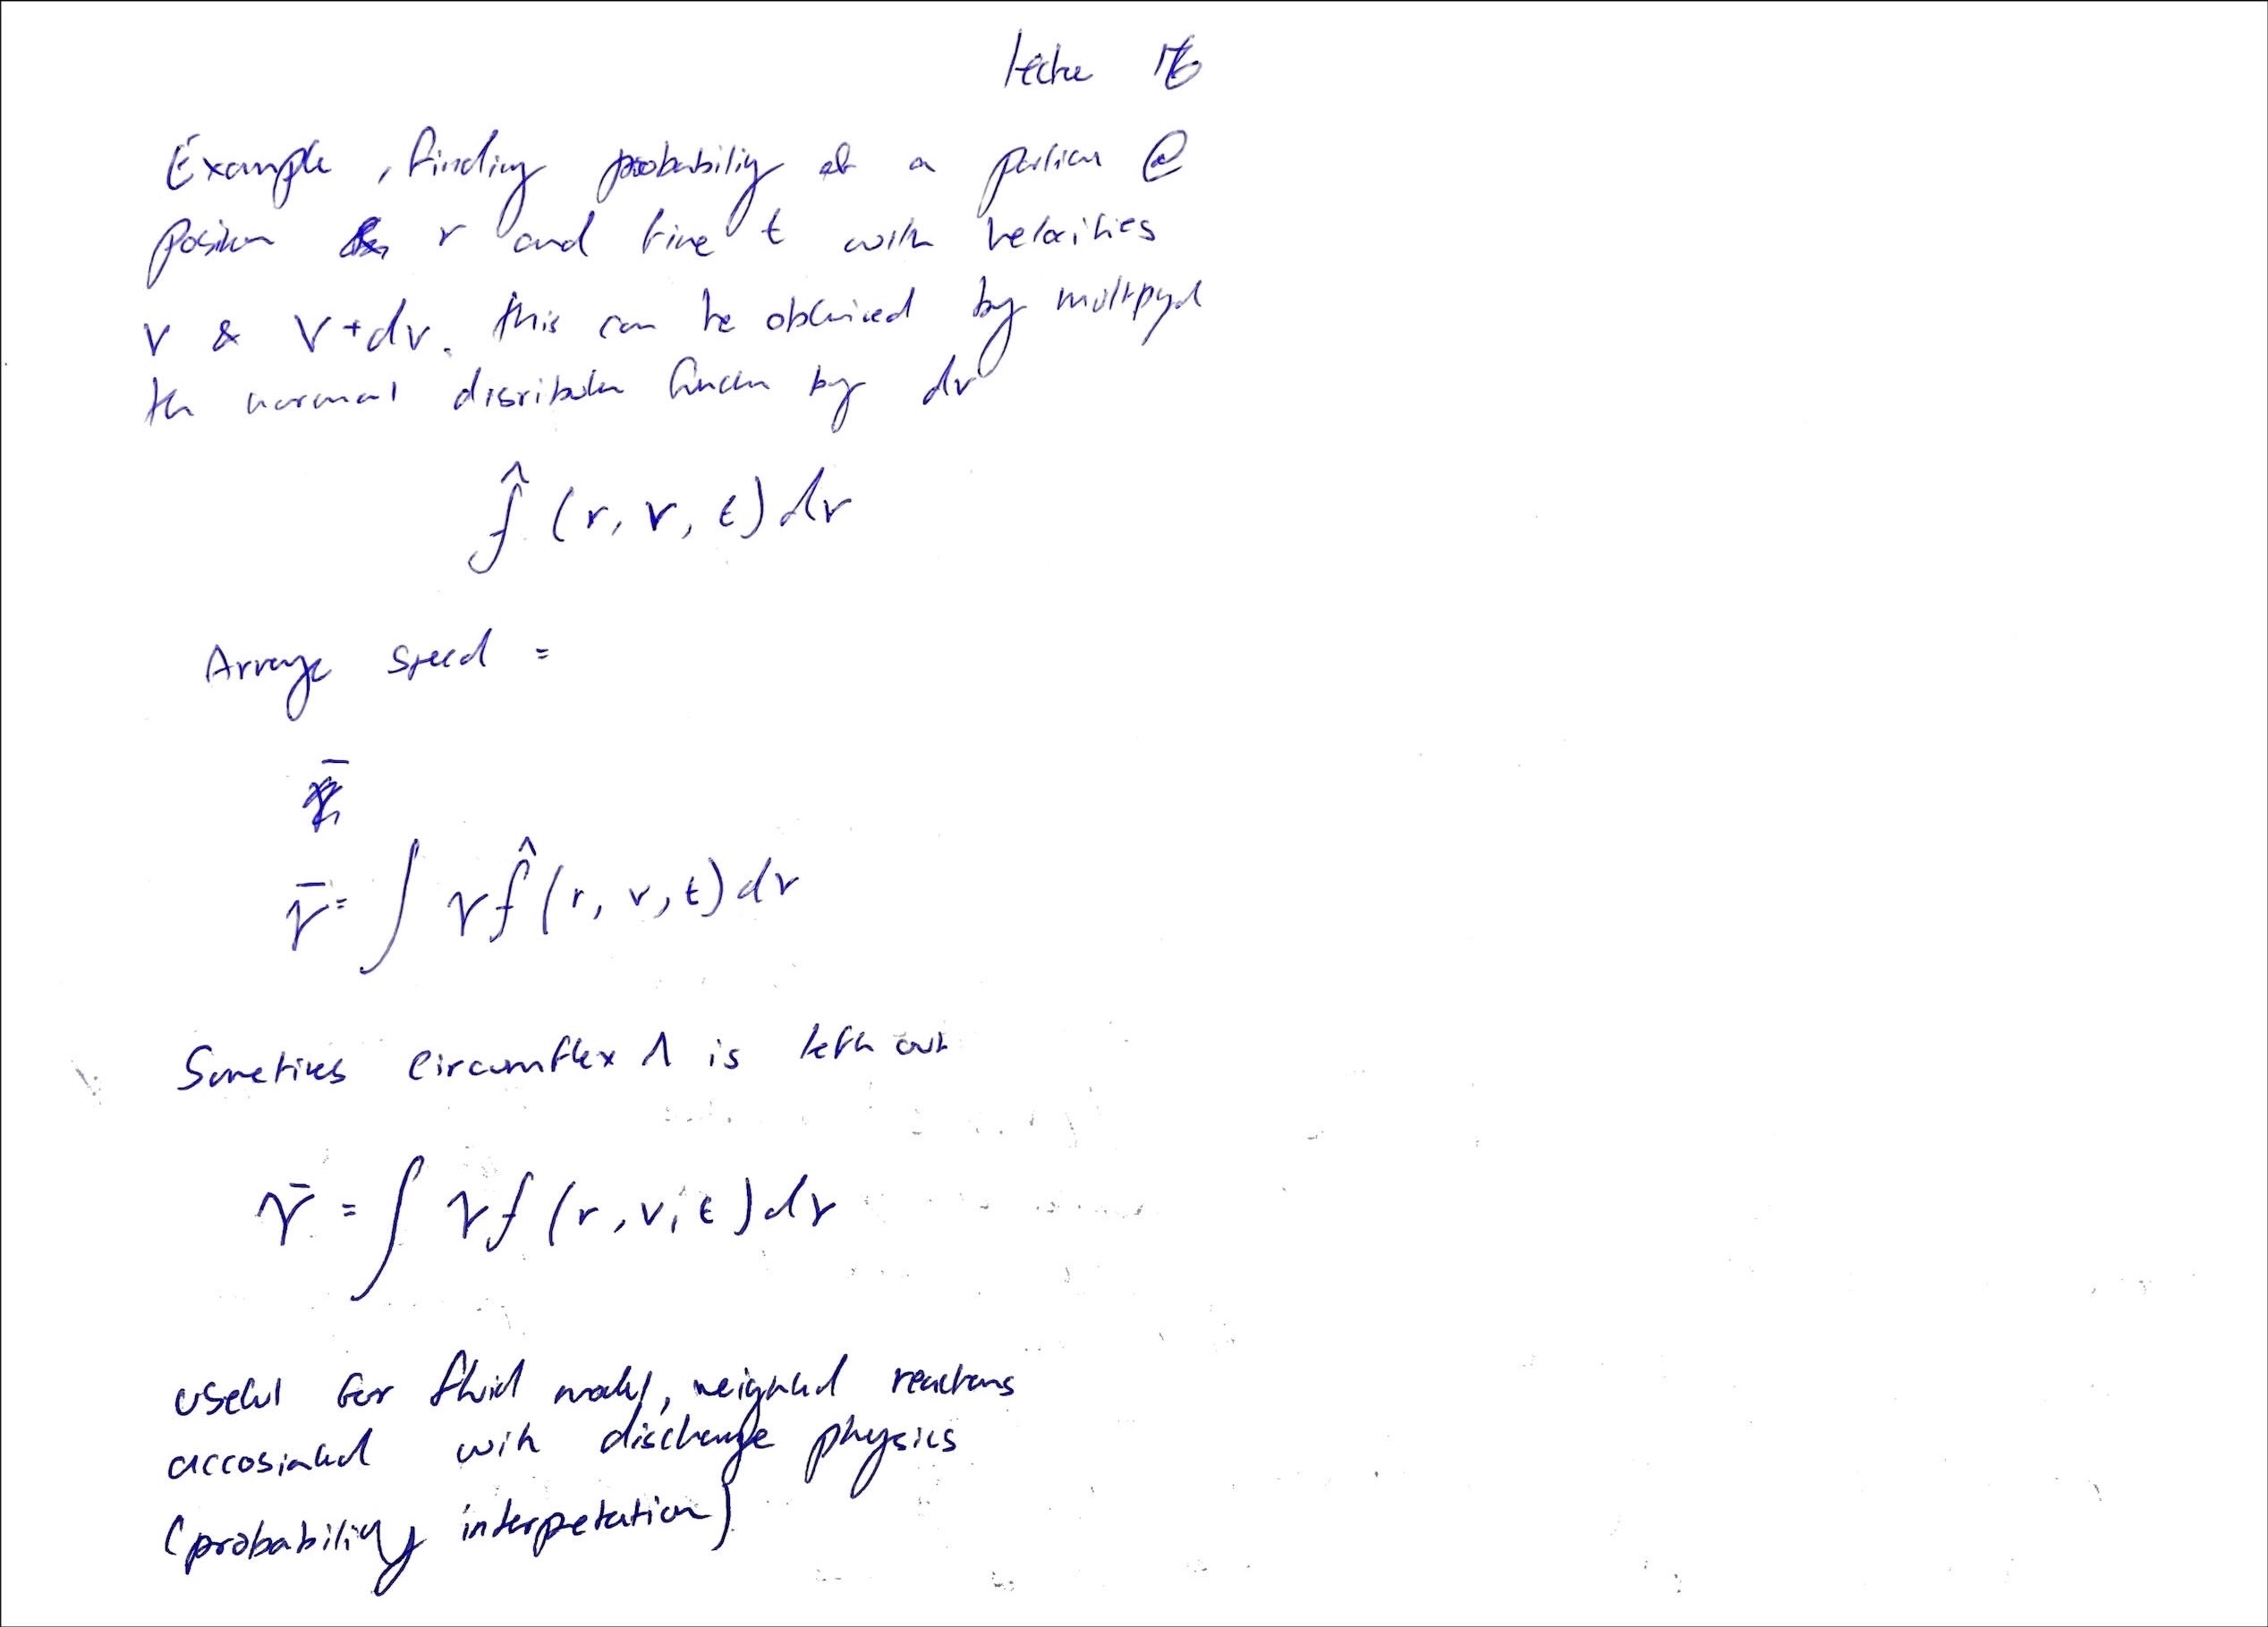 Lecture 16
Example, finding probability of a particle @
position r and time t with velocities
v & v+dv. this can be obtained by multiplyd
the normal distribution function by dv
f̂ (r, v, t) dv
Average speed =
v̄ = ∫ v f̂ (r, v, t) dv
Sometimes circumflex ^ is left out
v̄ = ∫ v f (r, v, t) dv
useful for fluid model, weighted reactions
accosiated with discharge physics
(probability interpretation)